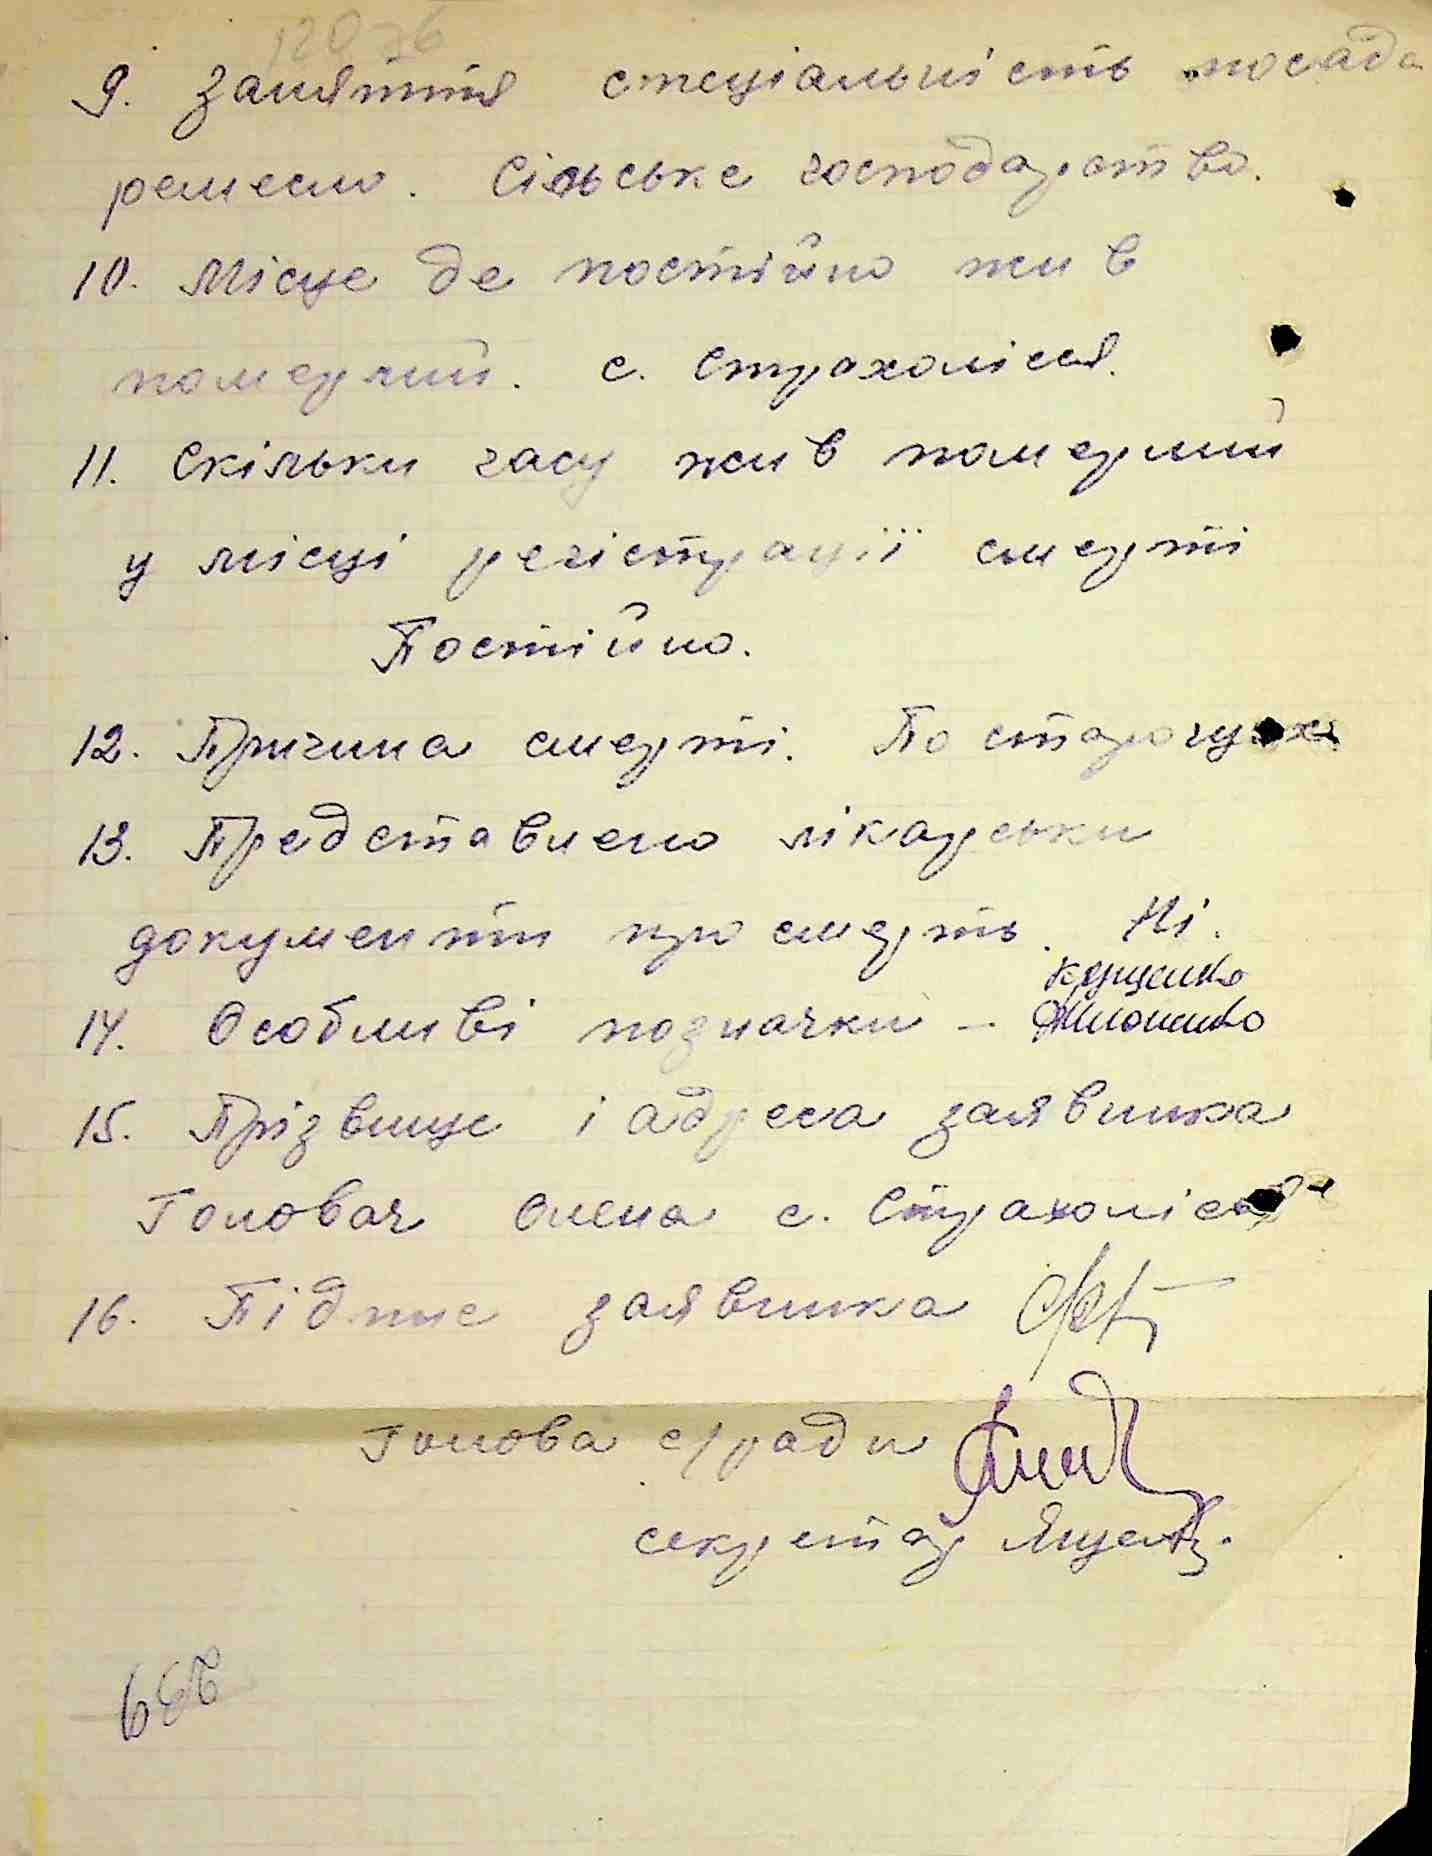 9. Заняття спеціальність посада
ремесло. Сільське господарство.
10. Місце де постійно жив
померлий. с. Страхолісся.
11. Скільки часу жив померлий
у місці регістрації смерті
Постійно.
12. Причина смерті. По старо
13. Представлено лікарськи
документи про смерть. Ні.
14. Особливі позначки –
15. Прізвище і адреса заявника
Головач Олена с. Страхолісся
16. Підпис заявника
Голова с/ради
секретар